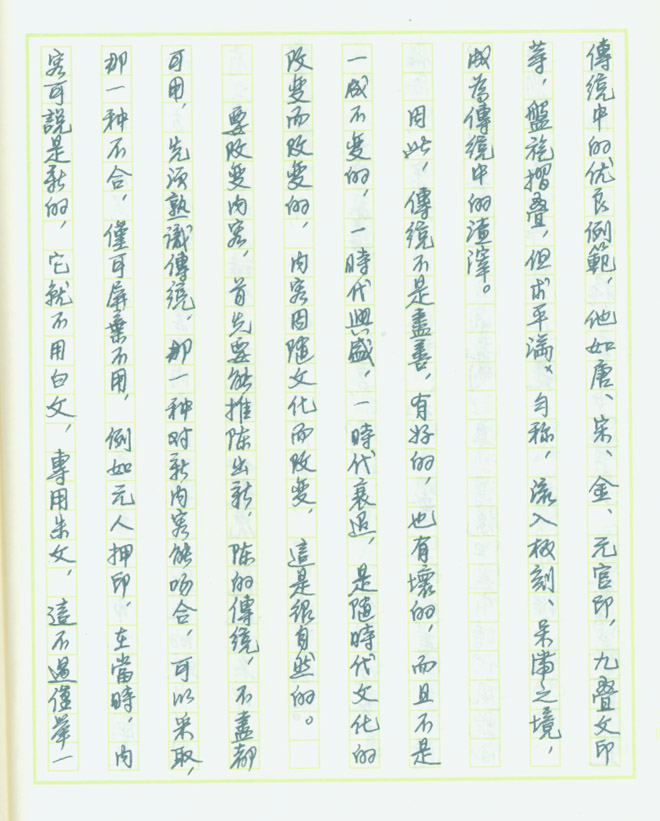 傳統中的优良例範，他如唐、宋、金、元官印，九疊文印
等，盤旋摺疊，但求平满、匀称，流入板刻、呆滯之境，
成為傳統中的渣滓。
因此，傳統不是盡善，有好的，也有壞的，而且不是
一成不变的，一時代興盛，一時代衰退，是随時代文化的
改变而改变的，内容因随文化而改变，這是很自然的。
要改变内容，首先要能推陈出新，陈的傳统，不盡都
可用，先须熟識傳统，那一种对新内容能吻合，可以采取，
那一种不合，僅可屏棄不用，例如元人押印，在當時，内
容可說是新的，它就不用白文，專用朱文，這不過僅舉一